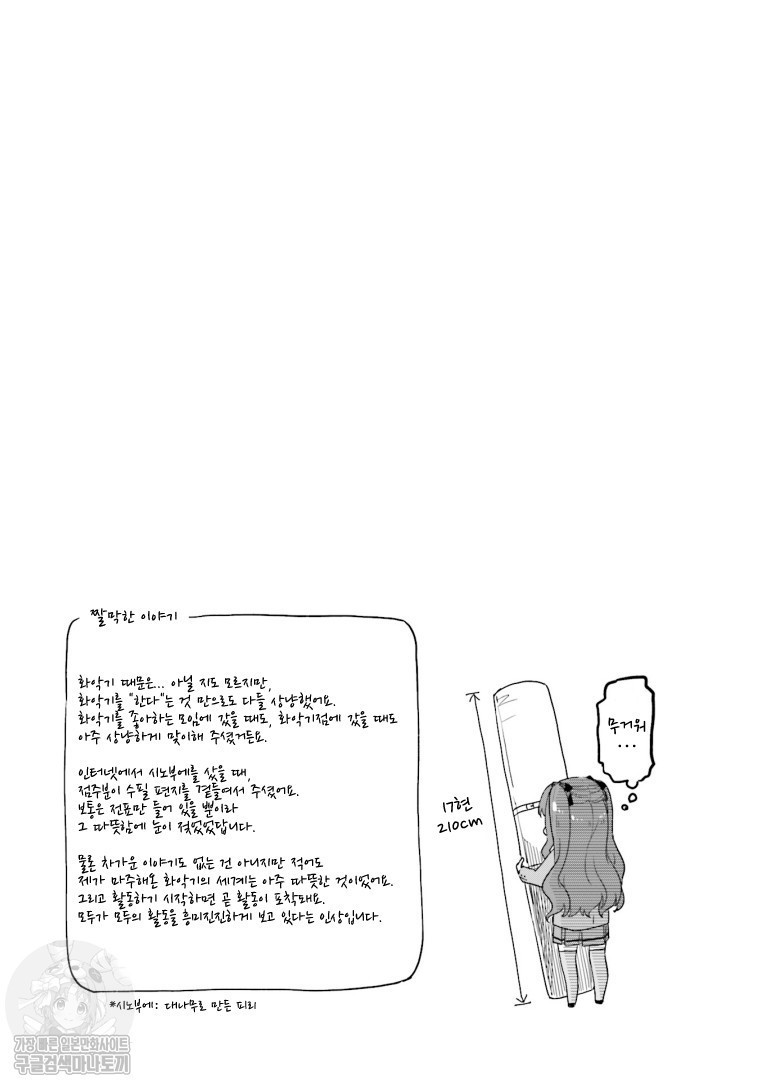 짤막한 이야기
화악기 때문은... 아닐 지도 모르지만,
화악기를 "한다"는 것 만으로도 다들 상냥했어요.
화악기를 좋아하는 모임에 갔을 때도, 화악기점에 갔을 때도
아주 상냥하게 맞이해 주셨거든요.
인터넷에서 시노부에를 샀을 때,
점주분이 수필 편지를 곁들여서 주셨어요.
보통은 전표만 들어 있을 뿐이라
그 따뜻함에 눈이 젖었었답니다.
물론 차가운 이야기도 없는 건 아니지만 적어도
제가 마주해온 화악기의 세계는 아주 따뜻한 것이었어요.
그리고 활동하기 시작하면 곧 활동이 포착돼요.
모두가 모두의 활동을 흥미진진하게 보고 있다는 인상입니다.
*시노부에: 대나무로 만든 피리
17현
210cm
무거워
...
가장 빠른 일본만화사이트
구글검색마나토끼